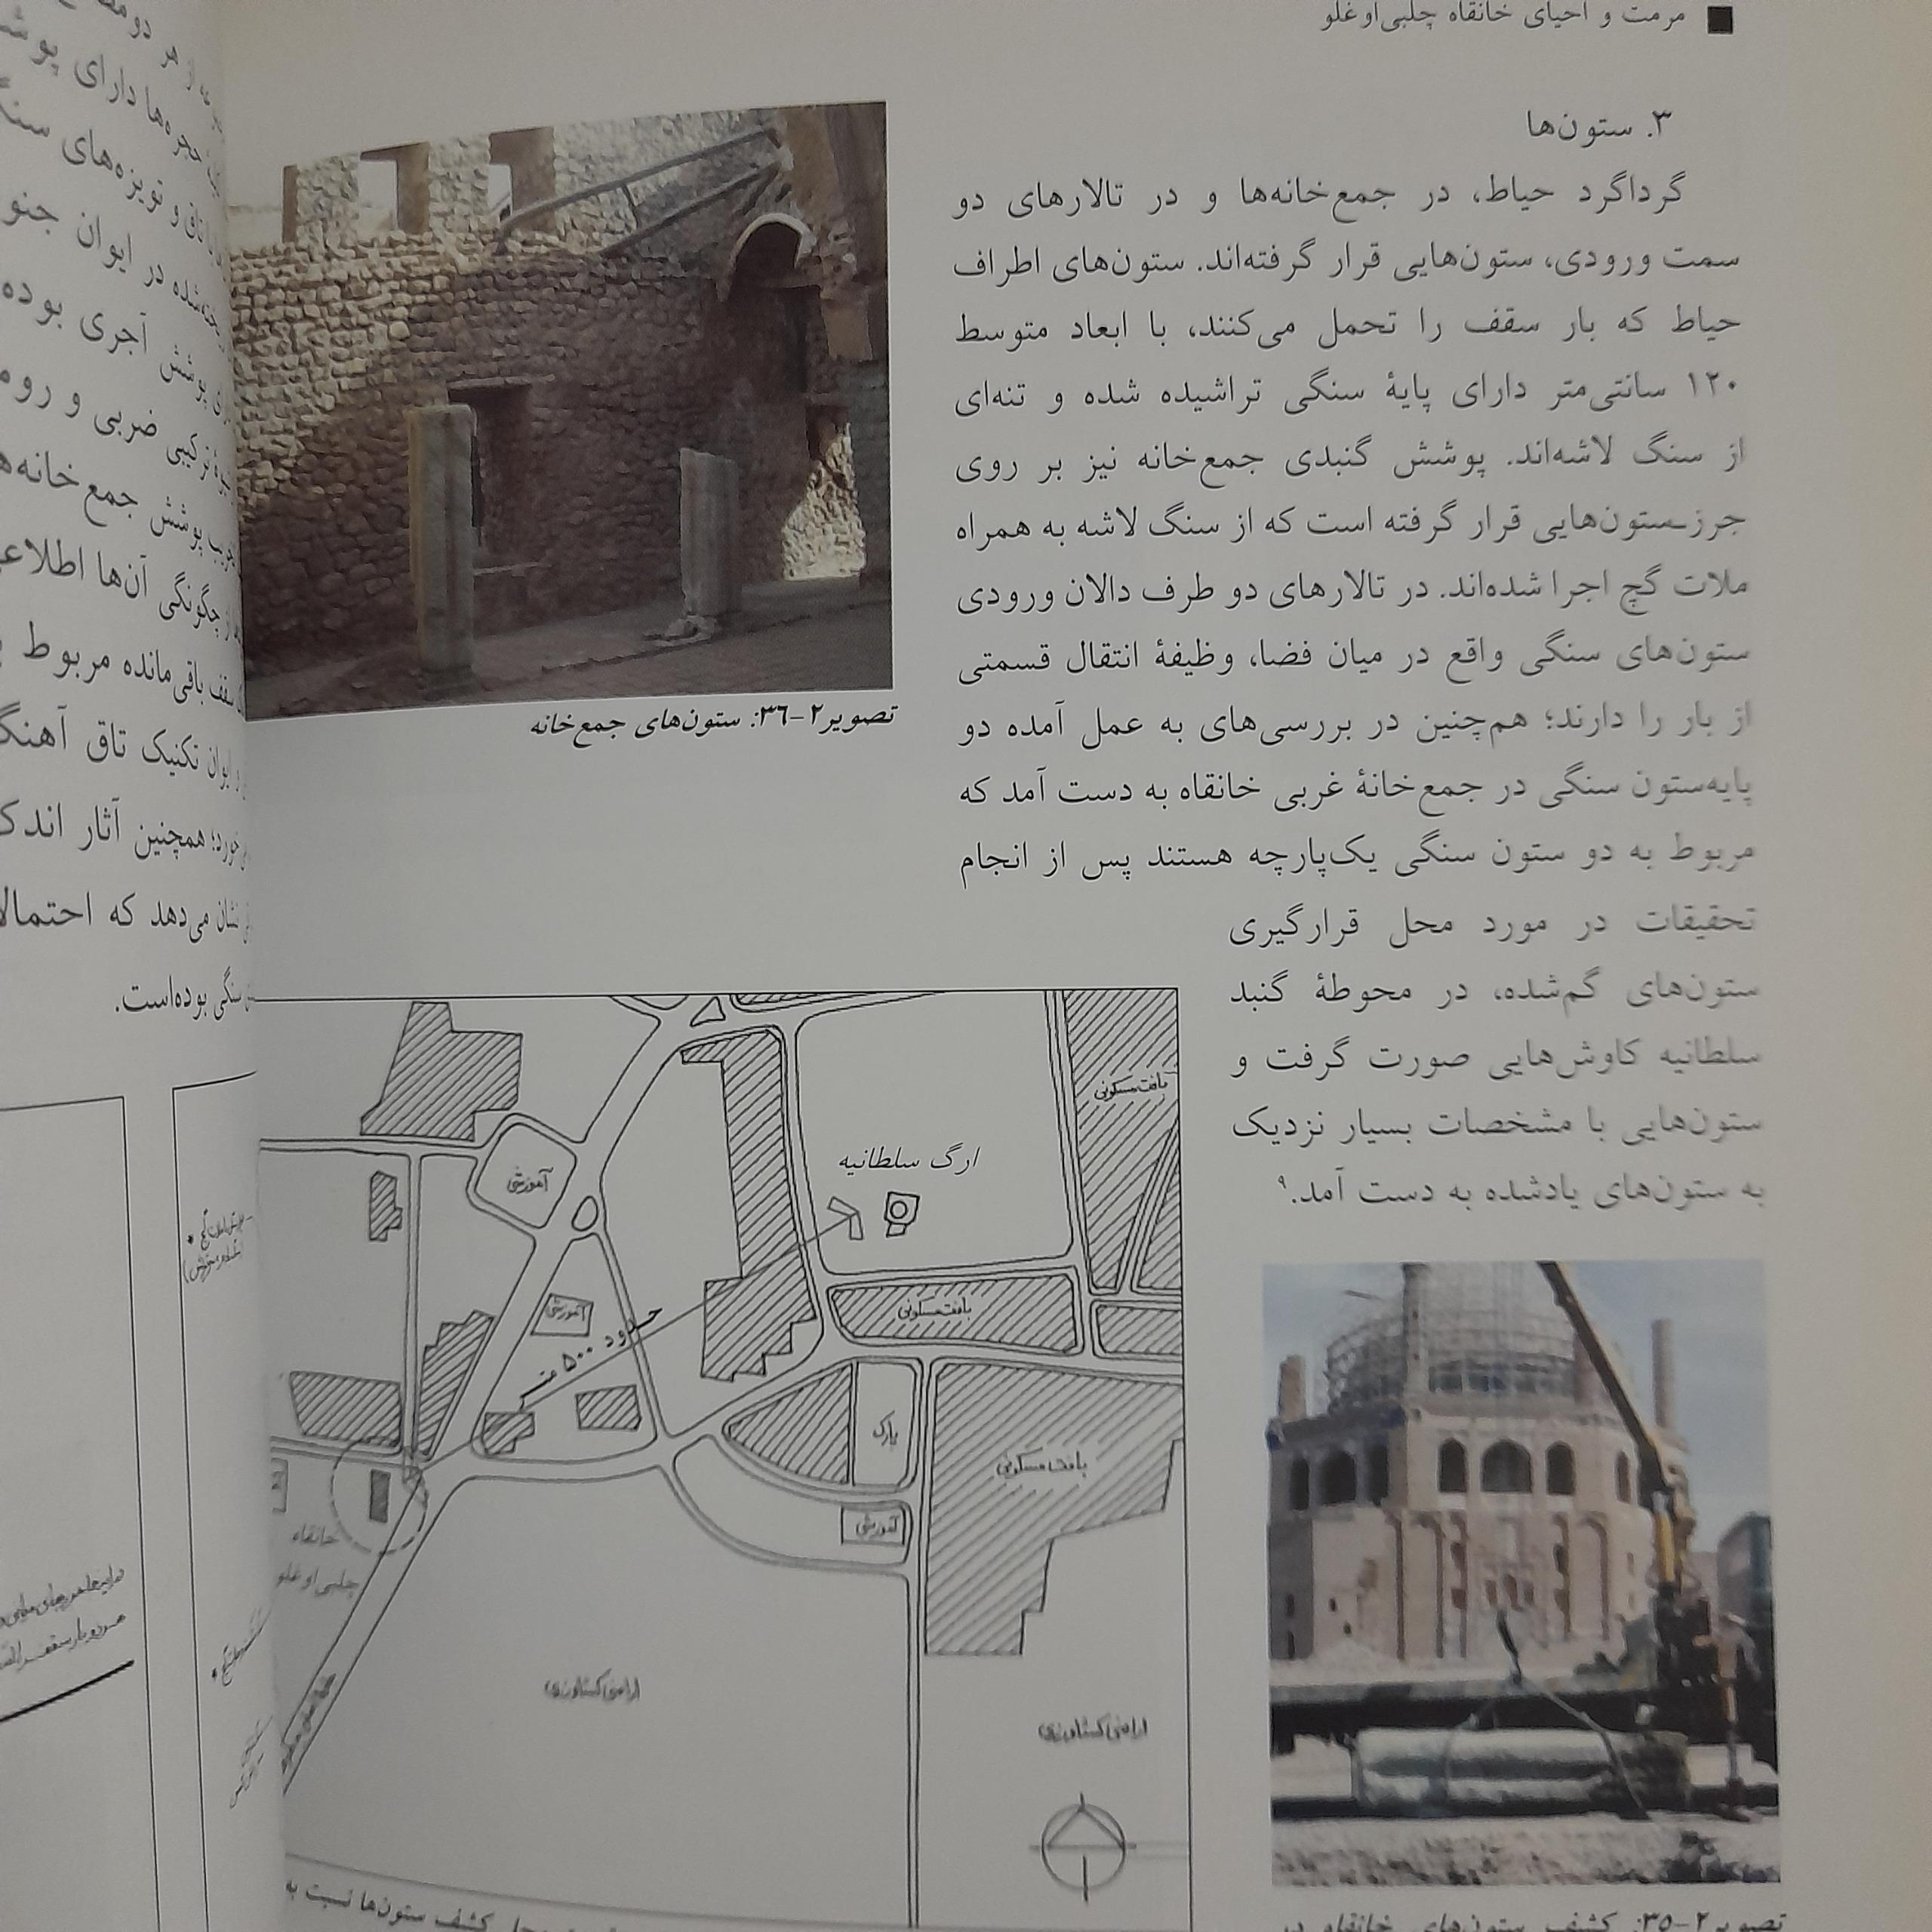 مرمت و احیای خانقاه چلبی‌اوغلو
۳. ستون‌ها
گرداگرد حیاط، در جمع‌خانه‌ها و در تالارهای دو
سمت ورودی، ستون‌هایی قرار گرفته‌اند. ستون‌های اطراف
حیاط که بار سقف را تحمل می‌کنند، با ابعاد متوسط
۱۲۰ سانتی‌متر دارای پایهٔ سنگی تراشیده شده و تنه‌ای
از سنگ لاشه‌اند. پوشش گنبدی جمع‌خانه نیز بر روی
جرز-ستون‌هایی قرار گرفته است که از سنگ لاشه به همراه
ملات گچ اجرا شده‌اند. در تالارهای دو طرف دالان ورودی
ستون‌های سنگی واقع در میان فضا، وظیفهٔ انتقال قسمتی
از بار را دارند؛ هم‌چنین در بررسی‌های به عمل آمده دو
پایه‌ستون سنگی در جمع‌خانهٔ غربی خانقاه به دست آمد که
مربوط به دو ستون سنگی یک‌پارچه هستند پس از انجام
تحقیقات در مورد محل قرارگیری
ستون‌های گم‌شده، در محوطهٔ گنبد
سلطانیه کاوش‌هایی صورت گرفت و
ستون‌هایی با مشخصات بسیار نزدیک
به ستون‌های یادشده به دست آمد.۹
تصویر۲-۳۶: ستون‌های جمع‌خانه
بافت مسکونی
ارگ سلطانیه
آموزشی
بافت مسکونی
آموزشی
حدود ۵۰۰ متر
پارک
بافت مسکونی
آموزشی
خانقاه
چلبی‌اوغلو
اراضی کشاورزی
اراضی کشاورزی
محل کشف ستون‌ها نسبت به
تصویر۲-۳۵: کشف ستون‌های خانقاه در
هر دو
حجره‌ها دارای
تاق و تویزه‌های
در ایوان
پوشش آجری بوده
ترکیبی ضربی و
پوشش جمع‌خانه‌ها
از چگونگی آن‌ها
سقف باقی‌مانده مربوط
ایوان تکنیک تاق
همچنین آثار
نشان می‌دهد که
سنگی بوده‌است.